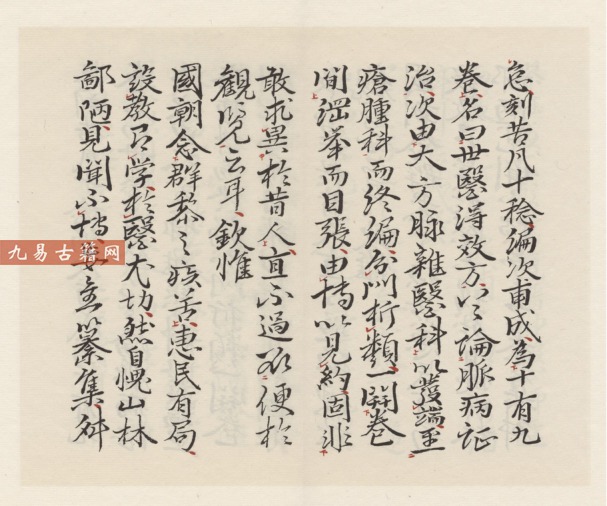 怠刻苦凡十稔編次甫成為十有九
卷名曰世醫得效方以論脈病証
治次由大方脈雜醫科以發端至
瘡腫科而終編分門析類一開卷
間綱举而目張由博以見約固非
敢求異於昔人直不過取便於
觀覽云耳欽惟
國朝念群黎之疾苦惠民有局
設教有学於醫尤切然自愧山林
鄙陋見聞不博妄意以纂集舛
九易古籍网